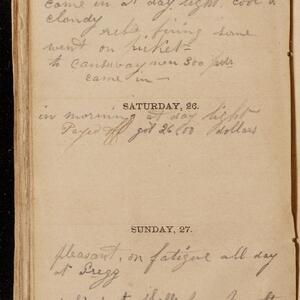 came in at day light, cool &
cloudy
rebs firing some
went on picket
to causeway 300
came in
SATURDAY, 26.
in morning at day light
Payed off got 26.00 dollars
SUNDAY, 27.
pleasant, on fatigue all day
at Gregg